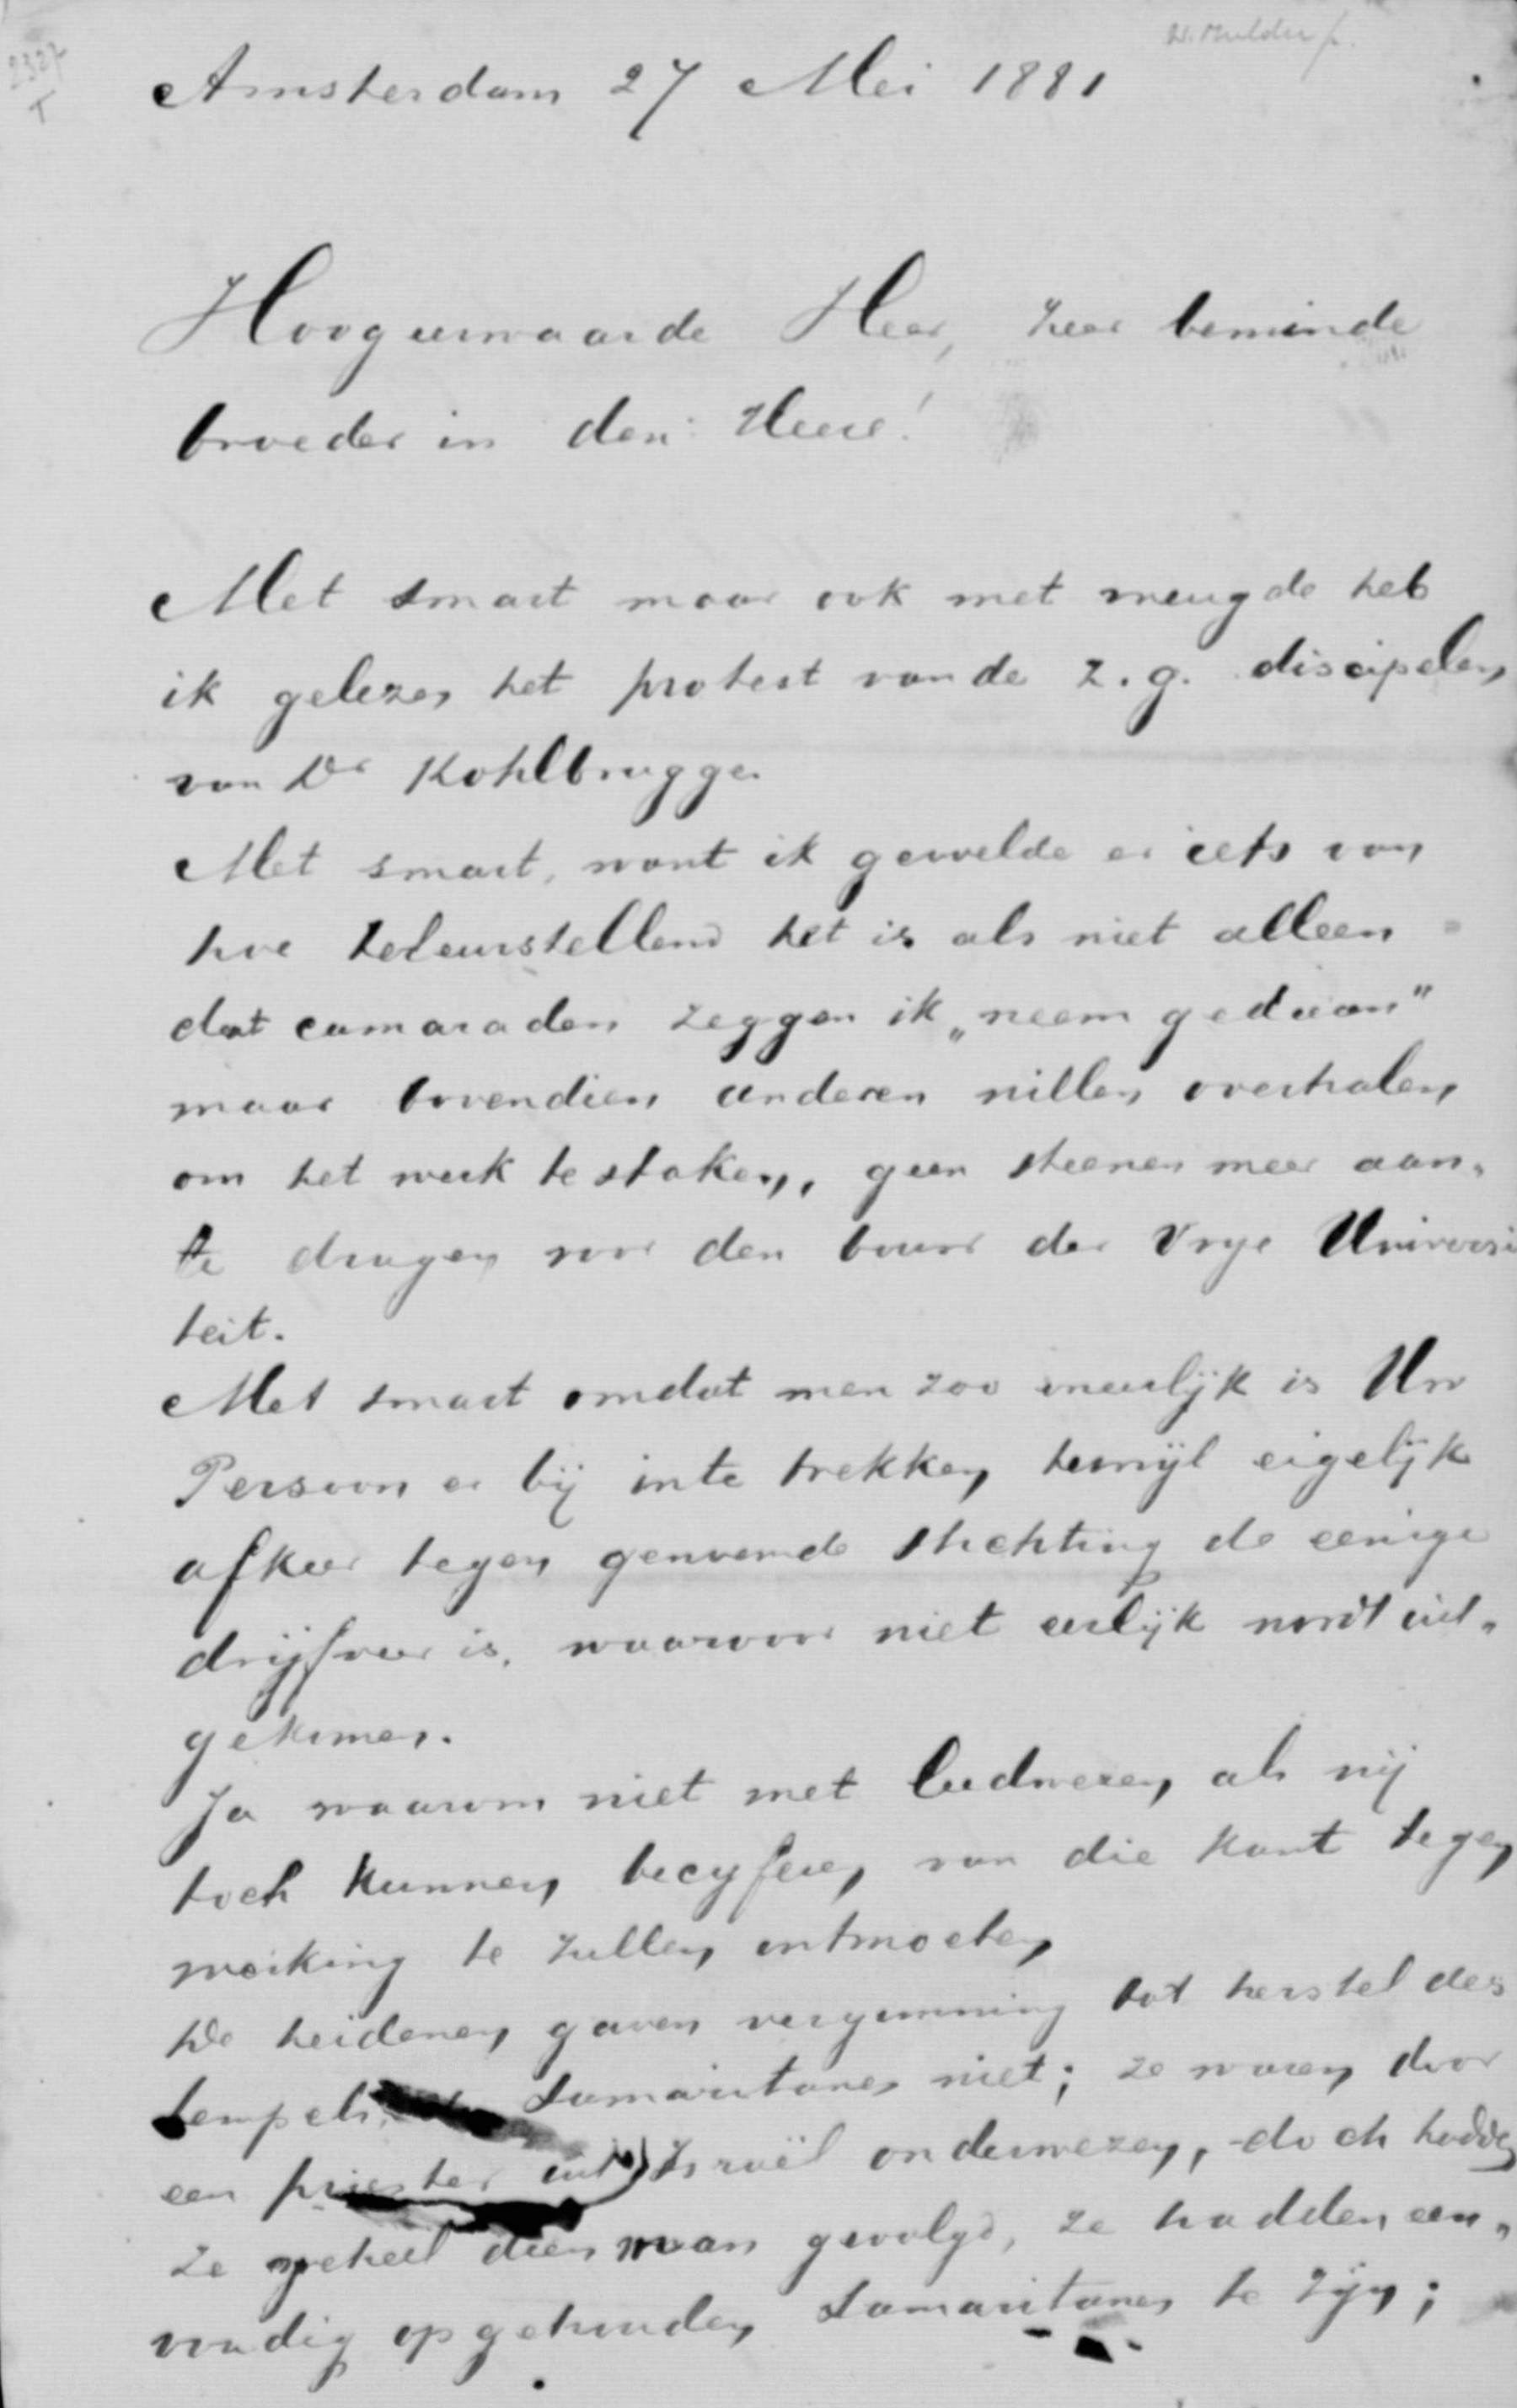 W. Mulder fr.
2327
T
Amsterdam 27 Mei 1881
Hoogeerwaarde Heer, Zeer beminde
broeder in den Heere!
Met smart maar ook met vreugde heb
ik gelezen het protest van de z.g. discipelen
van Dr Kohlbrugge.
Met smart, want ik gevoelde er iets van
hoe teleurstellend het is als niet alleen
dat camaraden zeggen ik „neem gedaan"
maar bovendien anderen willen overhalen
om het werk te staken, geen steenen meer aan„
te dragen voor den bouw der Vrye Universi
teit.
Met smart omdat men zoo oneerlijk is Uw
Persoon er bij inte trekken terwijl eigelijk
afkeer tegen genoemde stichting de eenige
drijfveer is, waarvoor niet eerlijk wordt uit„
gekomen.
Ja waarom niet met leedwezen, als wij
toch kunnen becyferen, van die kant tegen
werking te zullen ontmoeten
De heidenen gaven vergunning tot herstel des
tempels, Samaritanen niet; ze waren door
een priester uit Israël onderwezen, doch hadden
ze geheel dien man gevolgd, ze hadden een„
voudig opgehouden Samaritanen te zijn;